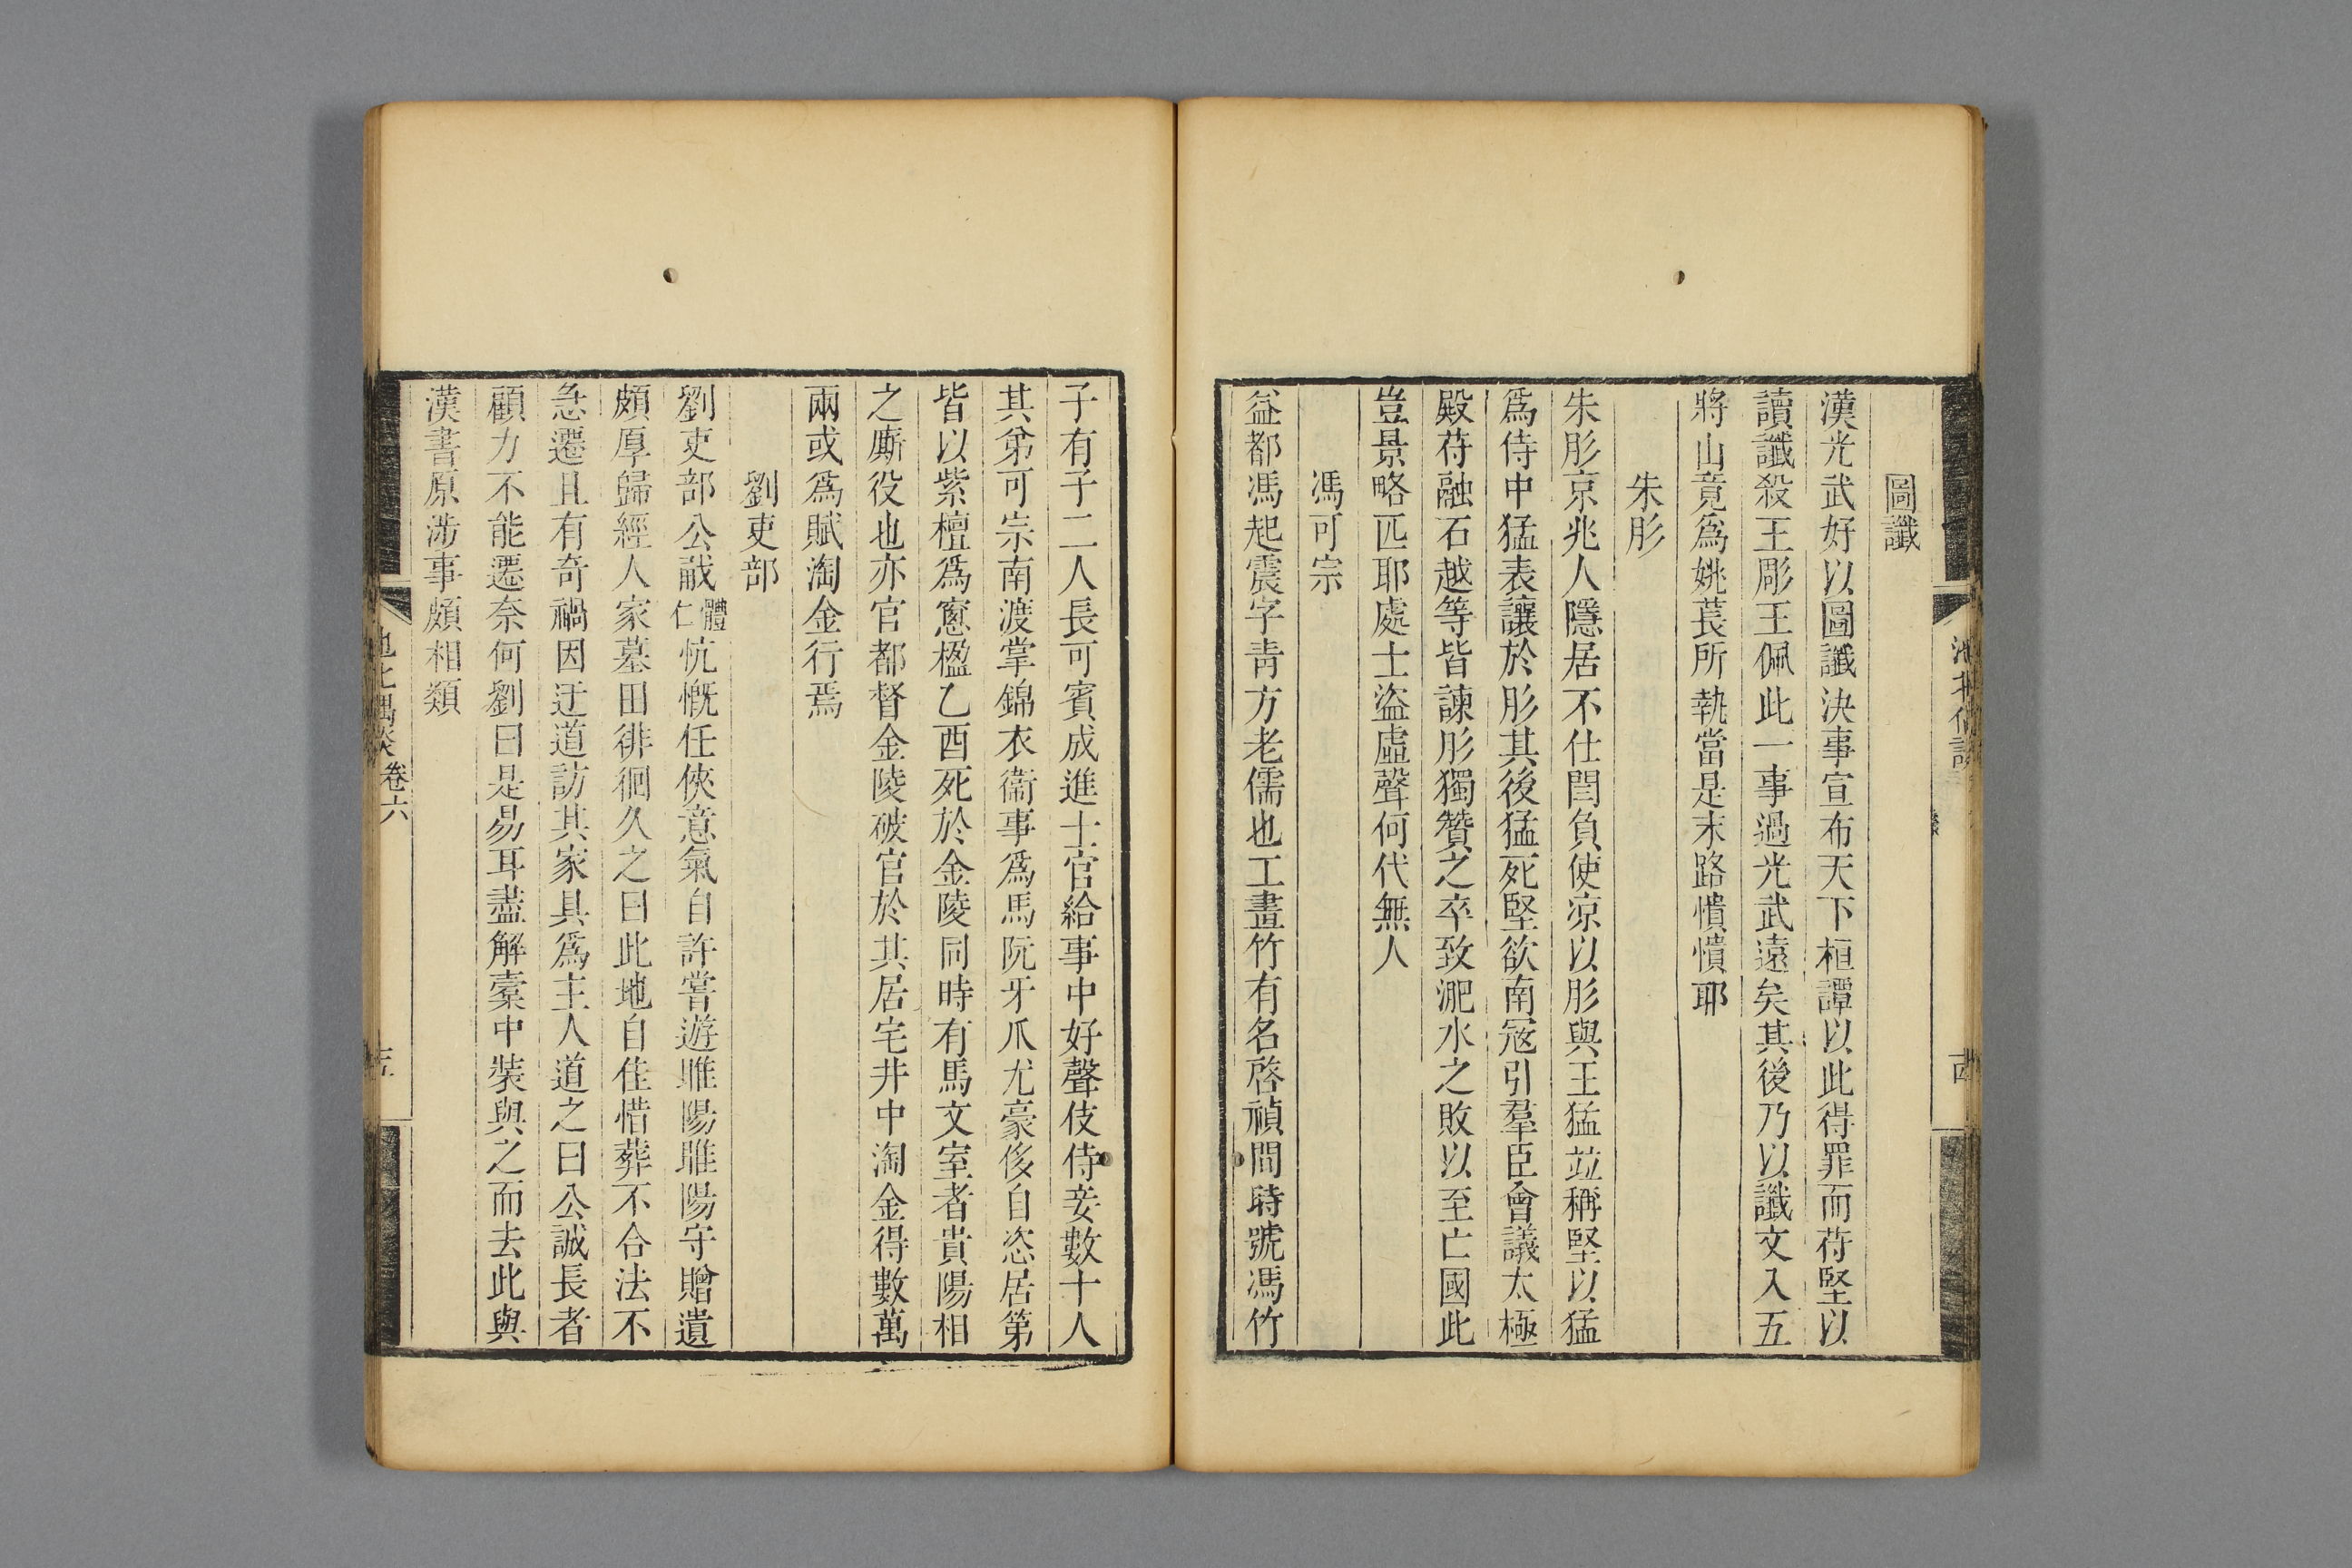 圖讖
漢光武好以圖讖決事宣布天下桓譚以此得罪而苻堅以
讀讖殺王彫王佩此一事過光武遠矣其後乃以讖文入五
將山竟爲姚萇所執當是末路憒憒耶
朱肜
朱肜京兆人隱居不仕閻負使凉以肜與王猛並稱堅以猛
爲侍中猛表讓於肜其後猛死堅欲南寇引羣臣會議太極
殿苻融石越等皆諫肜獨贊之卒致淝水之敗以至亡國此
豈景略匹耶處士盜虛聲何代無人
馮可宗
益都馮起震字靑方老儒也工畫竹有名啓禎間時號馮竹
子有子二人長可賓成進士官給事中好聲伎侍妾數十人
其弟可宗南渡掌錦衣衞事爲馬阮牙爪尤豪侈自恣居第
皆以紫檀爲窻楹乙酉死於金陵同時有馬文室者貴陽相
之廝役也亦官都督金陵破官於其居宅井中淘金得數萬
兩或爲賦淘金行焉
劉吏部
劉吏部公㦷體仁忼慨任俠意氣自許嘗遊睢陽睢陽守贈遺
頗厚歸經人家墓田徘徊久之曰此地自佳惜葬不合法不
急遷且有奇禍因迂道訪其家具爲主人道之曰公誠長者
顧力不能遷奈何劉曰是易耳盡解橐中裝與之而去此與
漢書原涉事頗相類
卷六